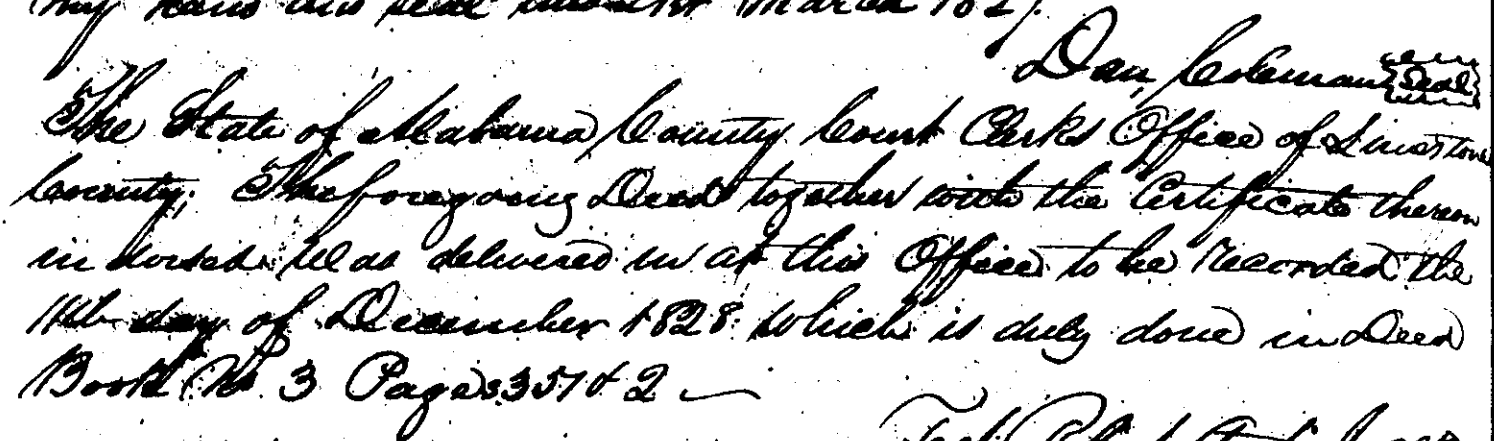 my hand and seal this 1st March 1827.
Dan, Coleman Seal
The State of Alabama County Court Clerks Office of Limestone
County; The foregoing Deed together with the Certificate thereon
indorsed Was delivered in at this Office to be Recorded the
11th day of December 1828 which is duly done in Deed
Book No 3 Pages 351 & 2
Test.